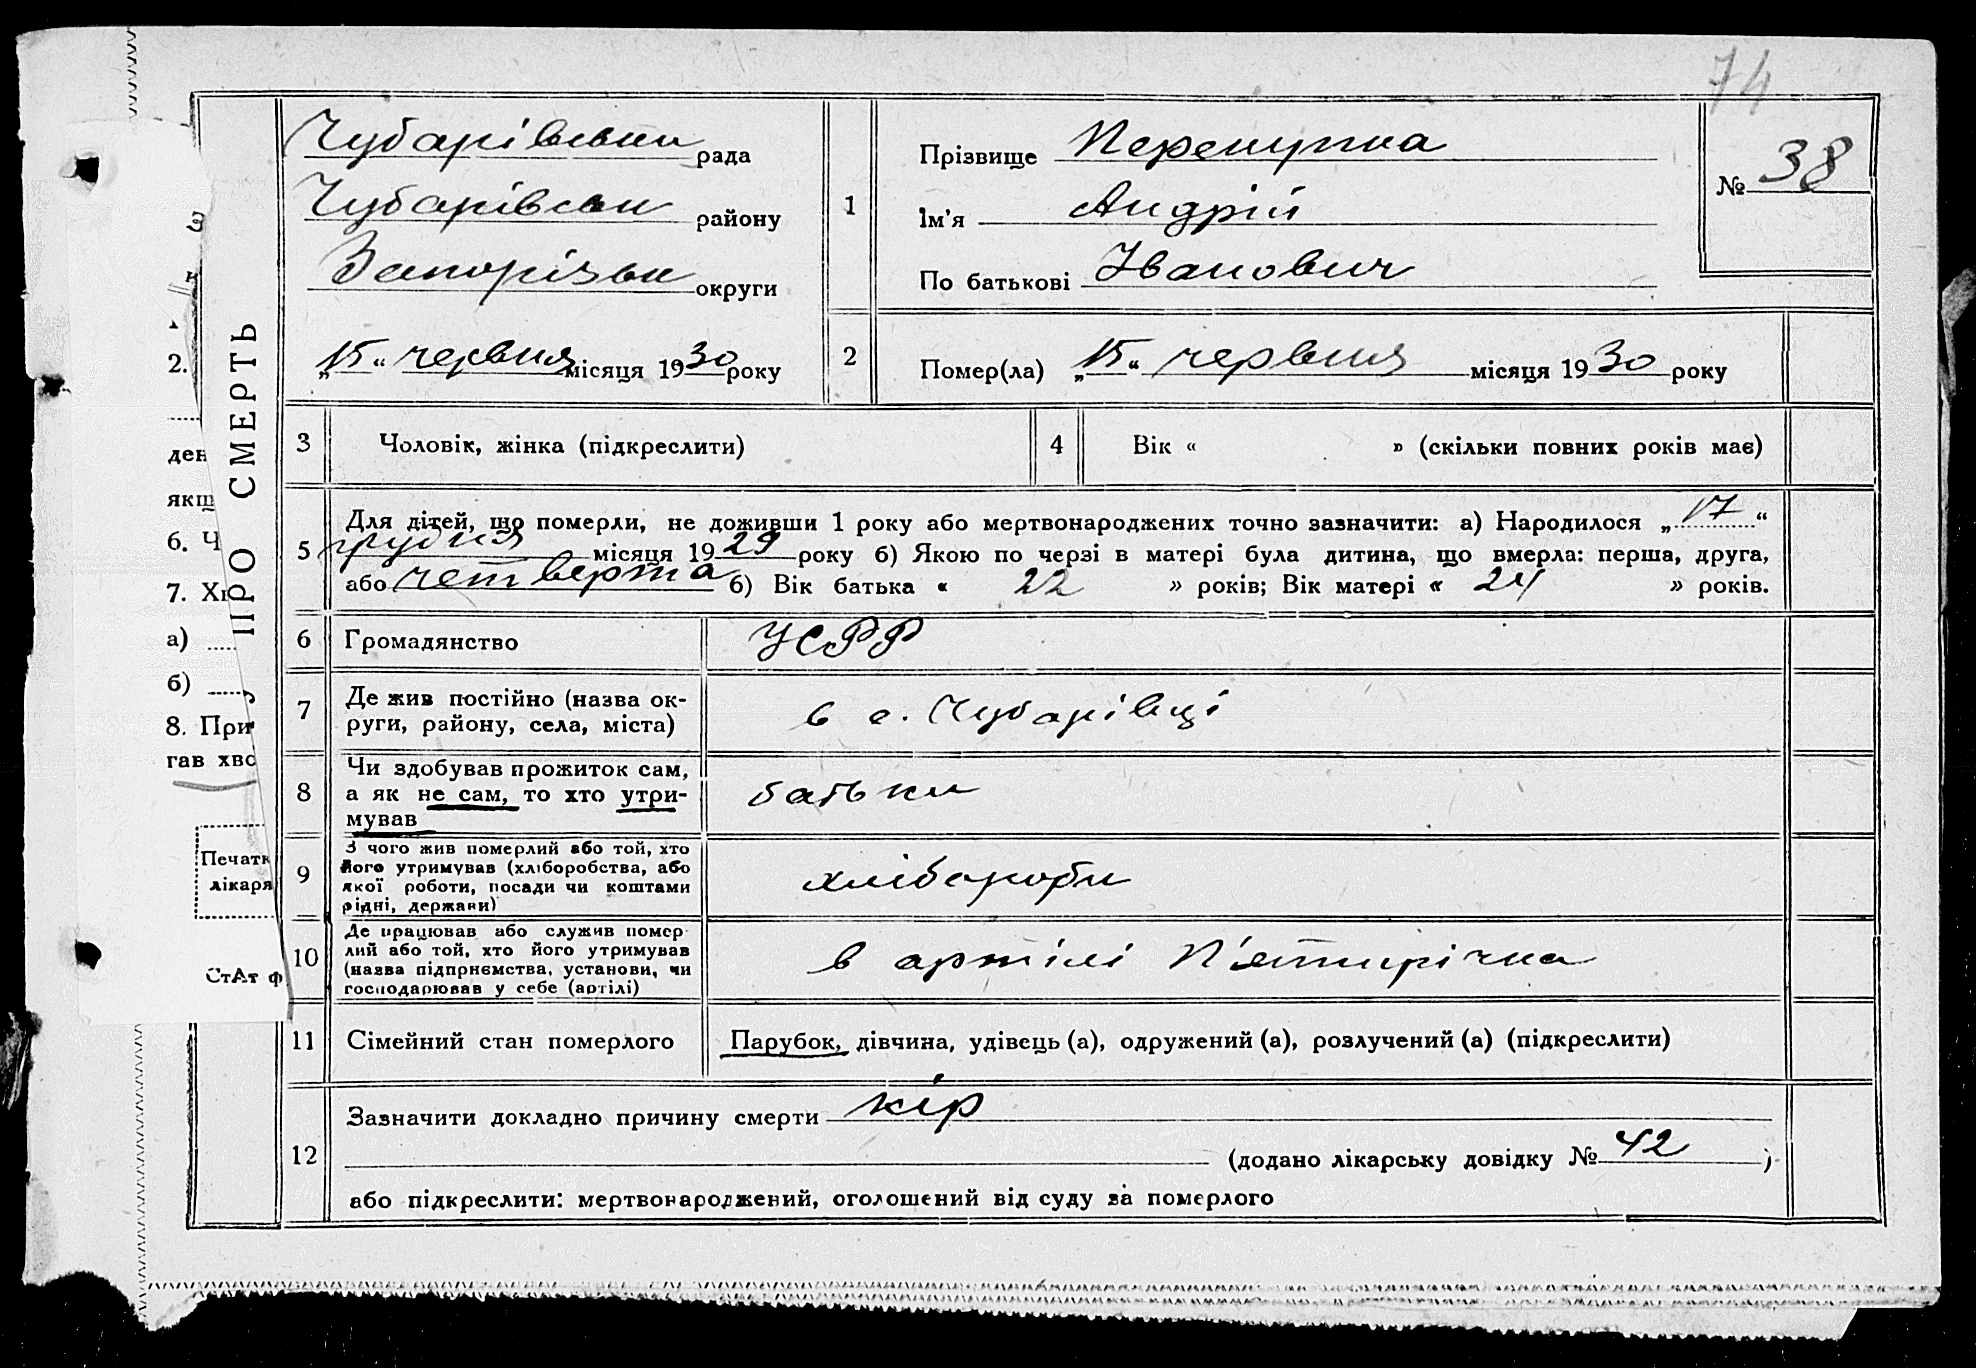 74
Чубарівськи рада
Чубарівськи району
Запорізьки округи
„15“ червня місяця 1930 року
1
Прізвище
Ім'я Андрій
По батькові Іванович
№ 38
2
Помер(ла) „15“ червня місяця 1930 року
ПРО СМЕРТЬ
3
Чоловік, жінка (підкреслити)
4
Вік « » (скільки повних років має)
5
Для дітей, що померли, не доживши 1 року або мертвонароджених точно зазначити: а) Народилося „17“
грудня місяця 1929 року б) Якою по черзі в матері була дитина, що вмерла: перша, друга,
або четверта б) Вік батька « 22 » років; Вік матері « 24 » років.
6
Громадянство
УСРР
7
Де жив постійно (назва ок-
руги, району, села, міста)
в с. Чубарівці
8
Чи здобував прожиток сам,
а як не сам, то хто утри-
мував
батьки
9
З чого жив померлий або той, хто
його утримував (хліборобства, або
якої роботи, посади чи коштами
рідні, держави)
хлібороби
10
Де працював або служив помер
лий або той, хто його утримував
(назва підприємства, установи, чи
господарював у себе (артілі)
в артілі П'ятирічка
11
Сімейний стан померлого
Парубок, дівчина, удівець (а), одружений (а), розлучений (а) (підкреслити)
12
Зазначити докладно причину смерти кір
(додано лікарську довідку № 42 )
або підкреслити: мертвонароджений, оголошений від суду за померлого
2.
ден
якщ
6. Ч
7. Хі
а)
б)
8. При
гав хво
Печатк
лікаря
СтАт ф